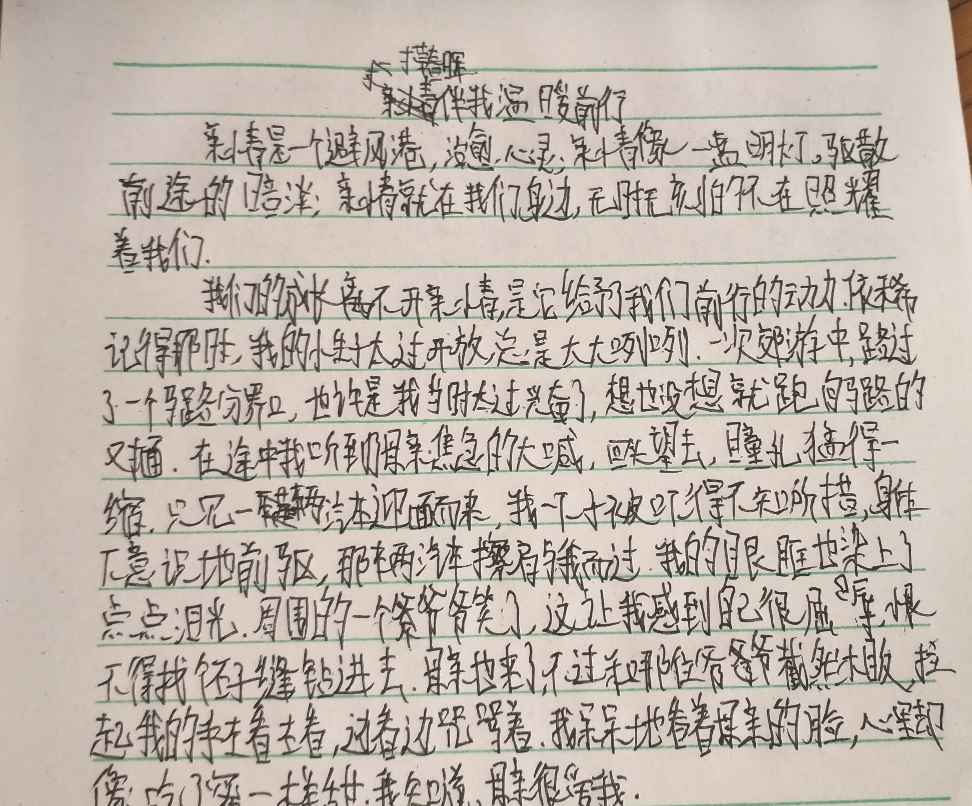 春晖
亲情伴我温暖前行
亲情是一个避风港,治愈心灵;亲情像一盏明灯,驱散
前途的暗淡;亲情就在我们身边,无时无刻的不在照耀
着我们.
我们的成长离不开亲情,是它给予了我们前行的动力.依稀
记得那时,我的小性子太过开放总是大大咧咧.一次郊游中,路过
了一个马路分界口,也许是我当时太过兴奋了,想也没想就跑向马路的
对面.在途中我听到母亲焦急的大喊,回头望去,瞳孔猛得一
缩,只见一辆汽车迎面而来,我一下子被吓得不知所措,身体
下意识地前驱,那车辆汽车擦肩与我而过.我的眼眶也染上了
点点泪光.周围的一个爷爷笑了,这让我感到自己很屈辱,恨
不得找个柸子缝钻进去.母亲也来了,不过和那位爷爷截然木版,拉
起我的手左看右看,边看边咒骂着.我呆呆地看着母亲的脸,心里却
像吃了蜜一样甜.我知道,母亲很爱我.